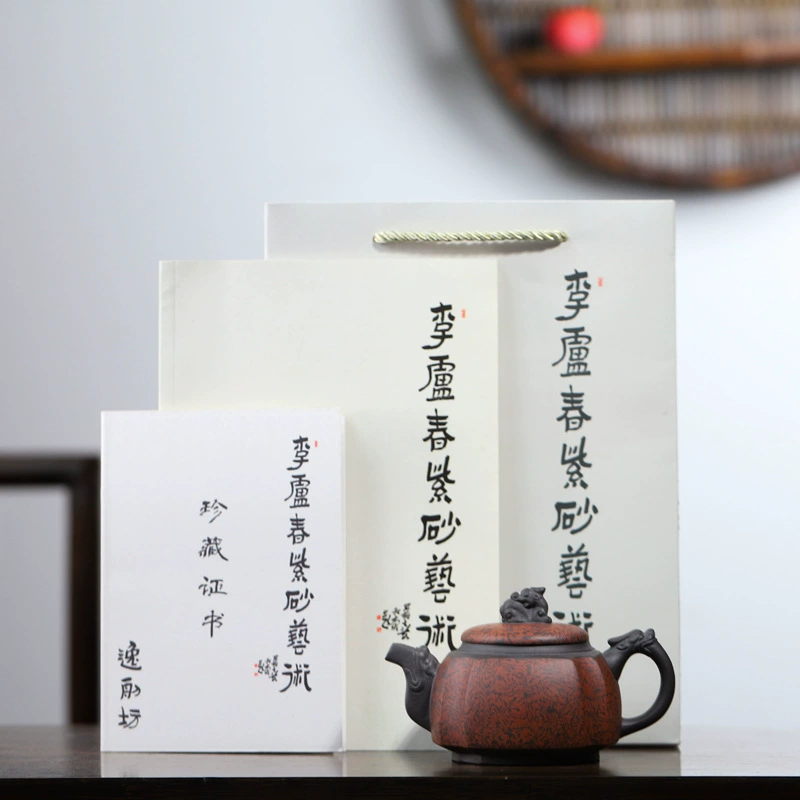 李廬春紫砂藝術
李廬春紫砂藝術
李廬春紫砂藝術
珍藏证书
逸坊